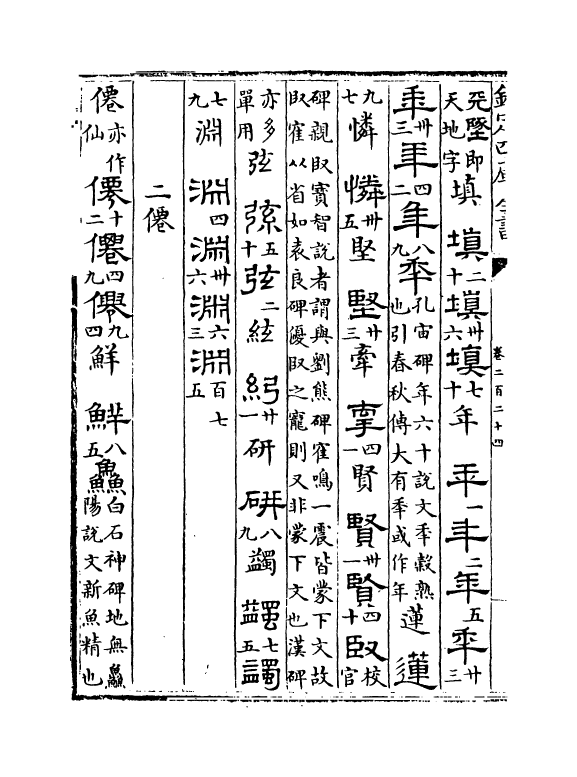 欽定四庫全書
卷二百二十四
兲墬即天地字 填 填二十 填卅六 填七十 年 年一 年二 年五 秊卅三
秊卅三 年四二 年八九 秊孔宙碑年六十說文秊穀熟也引春秋傳大有秊或作年 蓮 蓮
九七 憐 憐卅五 堅 堅廿三 牽 牽四一 賢 賢卅一 賢四十 臤校官
碑親臤寶智說者謂與劉熊碑寉鳴一震皆蒙下文故臤寉从省如袁良碑優臤之寵則又非蒙下文也漢碑
亦多單用 弦 弦五十 弦二 絃 絃廿一 研 研八九 蠲 蠲七五 蠲
七九 淵 淵四 淵卅六 淵六三 淵百七五
二僊
僊亦作仙 僊十二 僊四九 僊九四 鮮 鮮八五 鱻白石神碑地無鱻陽說文新魚精也